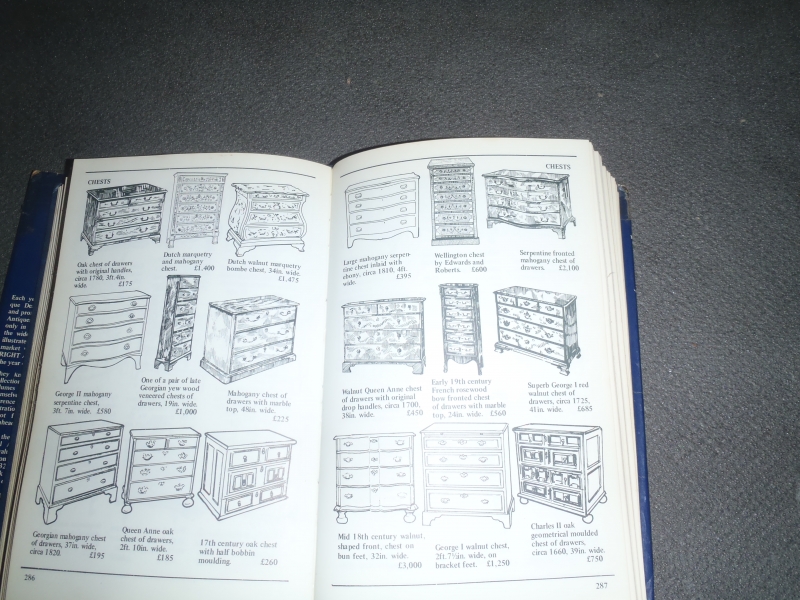 CHESTS
Oak chest of drawers
with original handles,
circa 1780, 3ft. 4in.
wide. £175
Dutch marquetry
and mahogany
chest. £1,400
Dutch walnut marquetry
bombe chest, 34in. wide.
£1,475
George II mahogany
serpentine chest,
3ft. 7in. wide. £580
One of a pair of late
Georgian yew wood
veneered chests of
drawers, 19in. wide.
£1,000
Mahogany chest of
drawers with marble
top, 48in. wide.
£225
Georgian mahogany chest
of drawers, 37in. wide,
circa 1820. £195
Queen Anne oak
chest of drawers,
2ft. 10in. wide.
£185
17th century oak chest
with half bobbin
moulding. £260
286
CHESTS
Large mahogany serpen-
tine chest inlaid with
ebony, circa 1810, 4ft.
wide. £395
Wellington chest
by Edwards and
Roberts. £600
Serpentine fronted
mahogany chest of
drawers. £2,100
Walnut Queen Anne chest
of drawers with original
drop handles, circa 1700,
38in. wide. £450
Early 19th century
French rosewood
bow fronted chest
of drawers with marble
top, 24in. wide. £560
Superb George I red
walnut chest of
drawers, circa 1725,
41in. wide. £685
Mid 18th century walnut,
shaped front, chest on
bun feet, 32in. wide.
£3,000
George I walnut chest,
2ft.7½in. wide, on
bracket feet. £1,250
Charles II oak
geometrical moulded
chest of drawers,
circa 1660, 39in. wide.
£750
287
Each
que De
and pro
Antique
only in
the wid
illustrate
market
RIGHT
the year
the